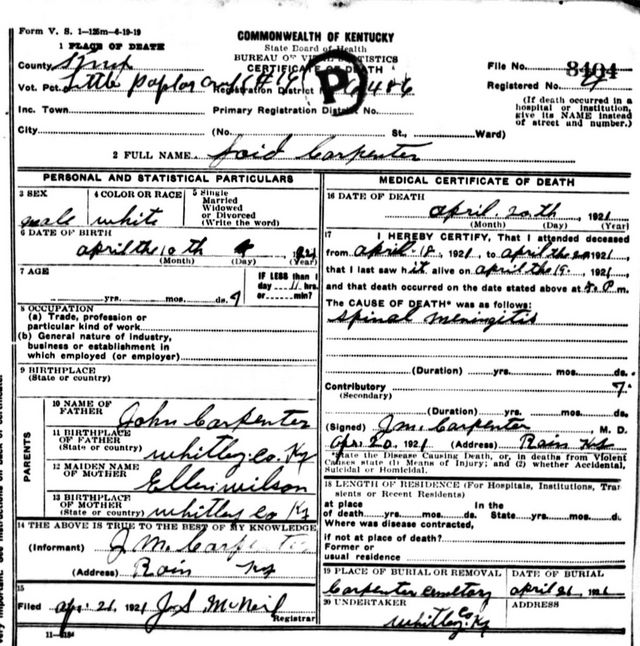 Form V. S. 1—125m—6-19-19
COMMONWEALTH OF KENTUCKY
State Board of Health
BUREAU OF VITAL STATISTICS
CERTIFICATE OF DEATH
1 PLACE OF DEATH
County
Vot. Pct. Little Poplar Creek
Registration District No.
File No. 8404
Registered No.
Inc. Town
Primary Registration District No.
(If death occurred in a hospital or institution, give its NAME instead of street and number.)
City
(No. St., Ward)
P
2 FULL NAME Carpenter
PERSONAL AND STATISTICAL PARTICULARS
3 SEX
male
4 COLOR OR RACE
white
5 Single
Married
Widowed
or Divorced
(Write the word)
6 DATE OF BIRTH
april the 10th 1921
(Month) (Day) (Year)
7 AGE
IF LESS than 1
day hrs.
or min?
yrs. mos. ds. 9
8 OCCUPATION
(a) Trade, profession or
particular kind of work
(b) General nature of industry,
business or establishment in
which employed (or employer)
9 BIRTHPLACE
(State or country)
PARENTS
10 NAME OF
FATHER John Carpenter
11 BIRTHPLACE
OF FATHER
(State or country) Whitley Co Ky
12 MAIDEN NAME
OF MOTHER Ellen Wilson
13 BIRTHPLACE
OF MOTHER
(State or country) Whitley Co Ky
14 THE ABOVE IS TRUE TO THE BEST OF MY KNOWLEDGE
(Informant) J. M. Carpenter
(Address) Rain Ky
15
Filed apr. 21, 1921 J. S. McNeil
Registrar
MEDICAL CERTIFICATE OF DEATH
16 DATE OF DEATH
april 20th, 1921
(Month) (Day) (Year)
17 I HEREBY CERTIFY, That I attended deceased
from april 18, 1921, to april the 20 1921
that I last saw h it alive on april the 19, 1921
and that death occurred on the date stated above at 8. P m.
The CAUSE OF DEATH* was as follows:
Spinal Meningitis
(Duration) yrs. mos. ds.
Contributory
(Secondary)
(Duration) yrs. mos. ds.
(Signed) J. M. Carpenter, M. D.
Apr. 20, 1921 (Address) Rain Ky
*State the Disease Causing Death, or, in deaths from Violent
Causes state (1) Means of Injury; and (2) whether Accidental,
Suicidal or Homicidal.
18 LENGTH OF RESIDENCE (For Hospitals, Institutions, Tran
sients or Recent Residents)
at place In the
of death yrs. mos. ds. State yrs. mos. d
Where was disease contracted,
if not at place of death?
Former or
usual residence
19 PLACE OF BURIAL OR REMOVAL
Carpenter Cemetery
DATE OF BURIAL
april 21, 1921
20 UNDERTAKER
ADDRESS
Whitley Co. Ky